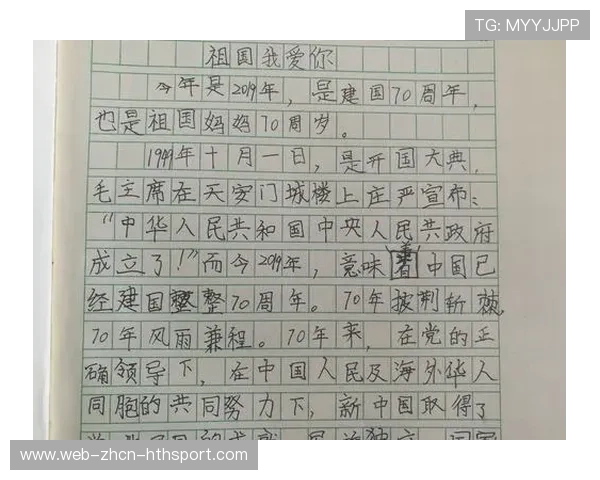 TG: MYYJJPP
祖国我爱你
今年是2019年，是建国70周年，
也是祖国妈妈70周岁。
1949年十月一日，是开国大典，
毛主席在天安门城楼上庄严宣布：
“中华人民共和国中央人民共政府
成立了！”而今2019年，意味着中国已
经建国整整70周年。70年披荆斩棘，
70年风雨兼程。70年来，在党的正
确领导下，在中国人民及海外华人
同胞的共同努力下，新中国取得了
www-web-zhcn-hthsport.com